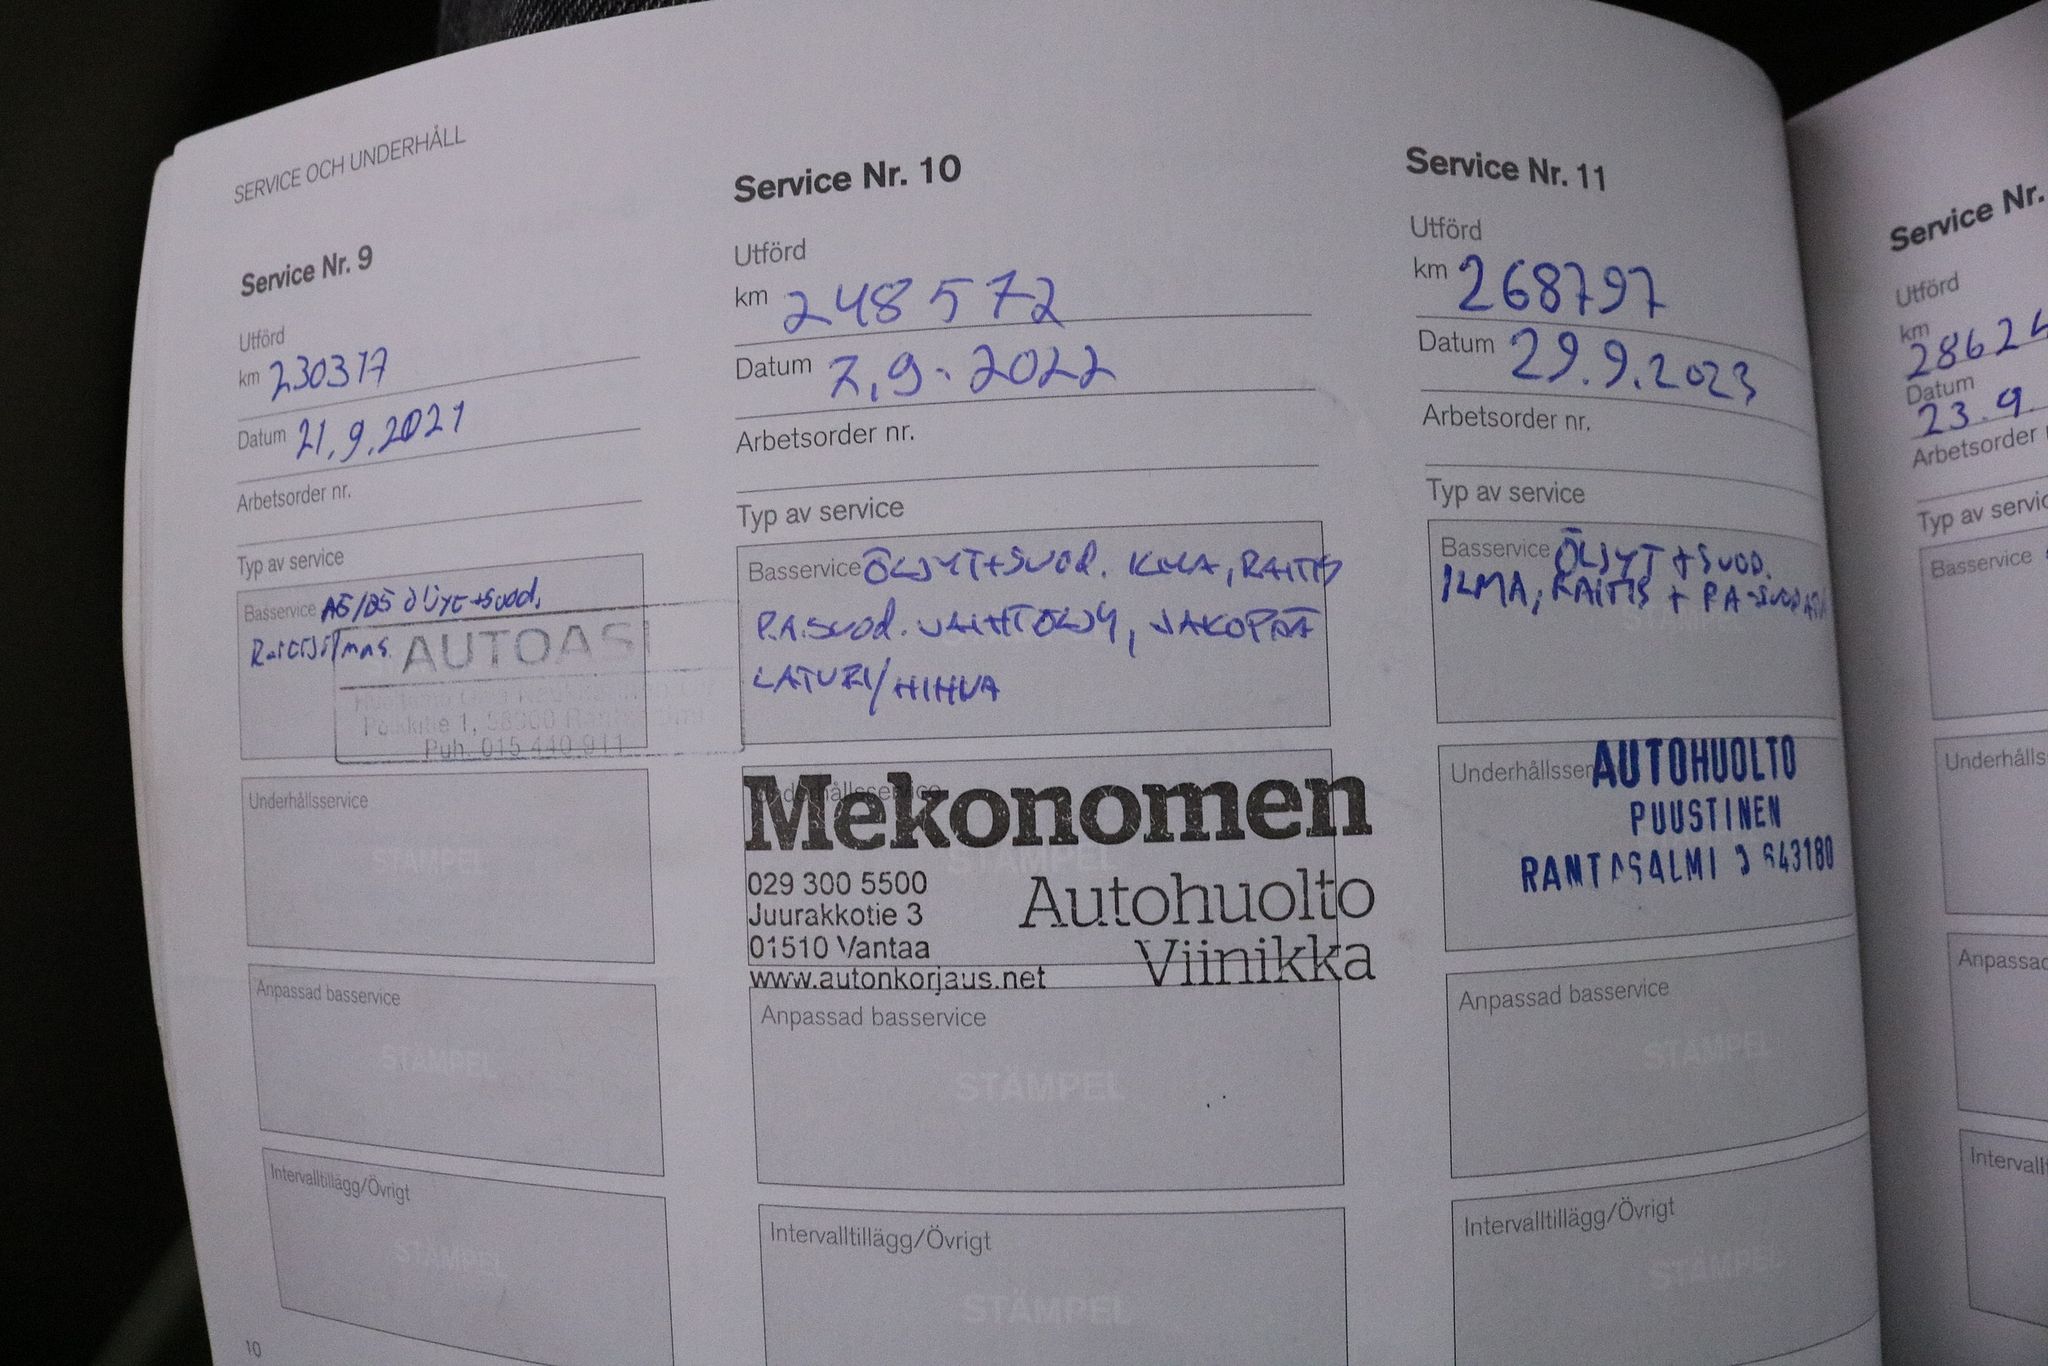 SERVICE OCH UNDERHÅLL
Service Nr. 9
Utförd
km 230317
Datum 21.9.2021
Arbetsorder nr.
Typ av service
Basservice AS/BS ÖLJYT+SUOD.
AUTOASI
1, 58900
Puh. 015 440 911
Underhållsservice
STÄMPEL
Anpassad basservice
STÄMPEL
Intervalltillägg/Övrigt
STÄMPEL
10
Service Nr. 10
Utförd
km 248572
Datum 7.9.2022
Arbetsorder nr.
Typ av service
Basservice ÖLJYT+SUOD. ILMA, RAITIS
P.A.SUOD. VAIHTÖLJY, JAKOPÄÄ
LATURI/HIHNA
Mekonomen
STÄMPEL
029 300 5500
Juurakkotie 3
01510 Vantaa
www.autonkorjaus.net
Autohuolto
Viinikka
Anpassad basservice
STÄMPEL
Intervalltillägg/Övrigt
STÄMPEL
Service Nr. 11
Utförd
km 268797
Datum 29.9.2023
Arbetsorder nr.
Typ av service
Basservice ÖLJYT + SUOD.
ILMA, RAITIS + P.A-SUODATIN
Underhållsser
AUTOHUOLTO
PUUSTINEN
RANTASALMI 643180
Anpassad basservice
STÄMPEL
Intervalltillägg/Övrigt
STÄMPEL
Service Nr.
Utförd
km 28624
Datum
23.9.
Arbetsorder
Typ av servic
Basservice
Underhålls
Anpassad
Intervall